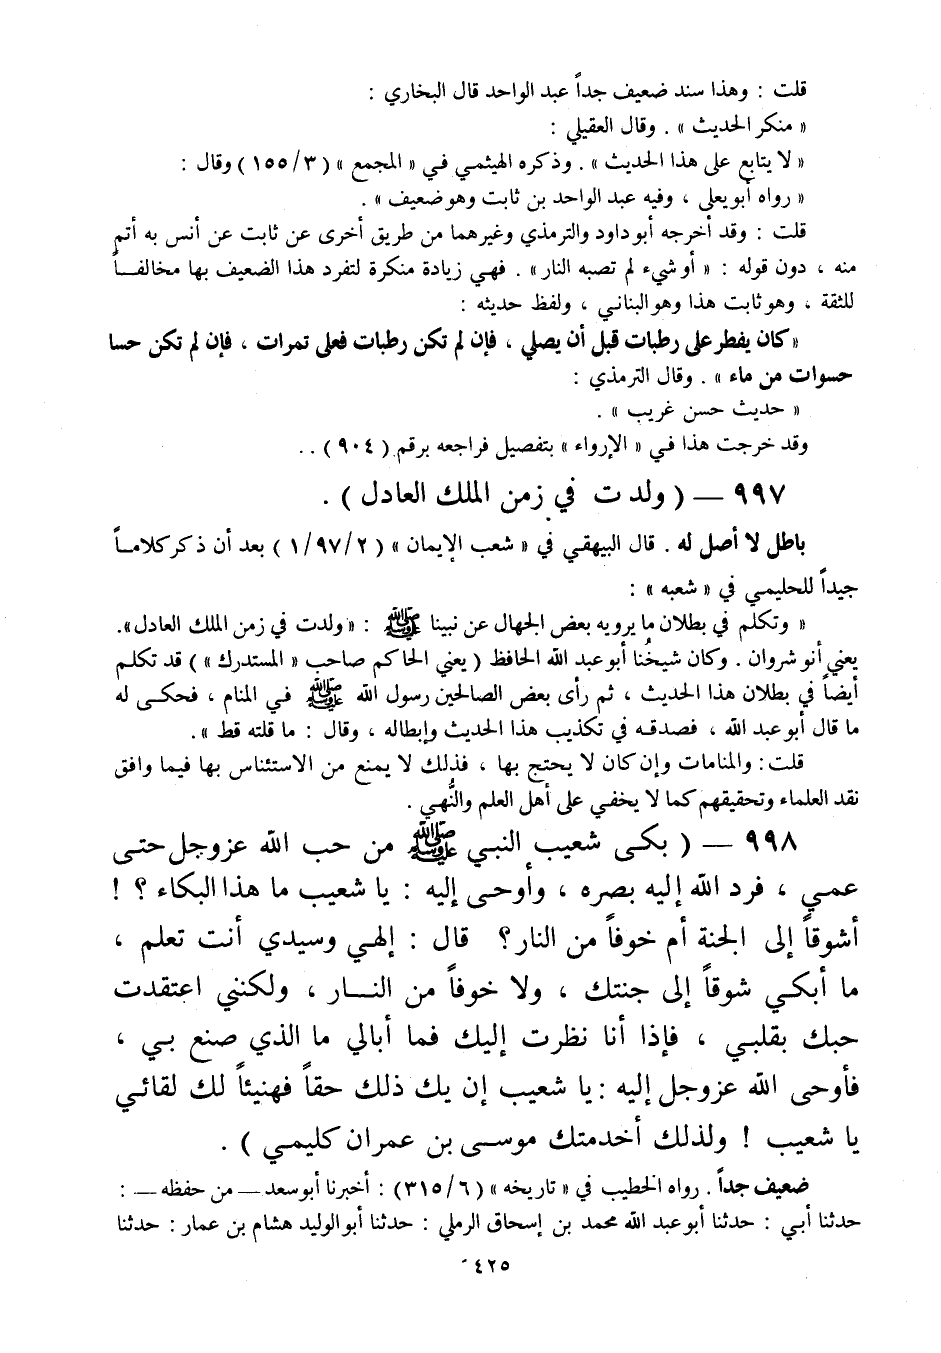 قلت : وهذا سند ضعيف جداً عبد الواحد قال البخاري :
« منكر الحديث » . وقال العقيلي :
« لا يتابع على هذا الحديث » . وذكره الهيثمي في « المجمع » ( ٣/ ١٥٥ ) وقال :
« رواه أبو يعلى ، وفيه عبد الواحد بن ثابت وهو ضعيف » .
قلت : وقد أخرجه أبو داود والترمذي وغيرهما من طريق أخرى عن ثابت عن أنس به أتم
منه ، دون قوله : « أو شيء لم تصبه النار » . فهي زيادة منكرة لتفرد هذا الضعيف بها مخالفـــاً
للثقة ، وهو ثابت هذا وهو البناني ، ولفظ حديثه :
« كان يفطر على رطبات قبل أن يصلي ، فإن لم تكن رطبات فعلى تمرات ، فإن لم تكن حسا
حسوات من ماء » . وقال الترمذي :
« حديث حسن غريب » .
وقد خرجت هذا في « الإرواء » بتفصيل فراجعه برقم ( ٩٠٤ ) . .
٩٩٧ — ( ولدت في زمن الملك العادل ) .
باطل لا أصل له . قال البيهقي في « شعب الإيمان » ( ٢ /٩٧ /١ ) بعد أن ذكر كلامـاً
جيداً للحليمي في « شعبه » :
« وتكلم في بطلان ما يرويه بعض الجهال عن نبينا ﷺ : « ولدت في زمن الملك العادل ».
يعني أنو شروان . وكان شيخُنا أبو عبد الله الحافظ ( يعني الحاكم صاحب « المستدرك » ) قد تكلم
أيضاً في بطلان هذا الحديث ، ثم رأى بعض الصالحين رسول الله ﷺ في المنام ، فحكى له
ما قال أبو عبد الله ، فصدقه في تكذيب هذا الحديث وإبطاله ، وقال : ما قلته قط » .
قلت : والمنامات وإن كان لا يحتج بها ، فذلك لا يمنع من الاستئناس بها فيما وافق
نقد العلماء وتحقيقهم كما لا يخفي على أهل العلم والنُّهي .
٩٩٨ — ( بكى شعيب النبي ﷺ من حب الله عزوجل حتى
عمي ، فرد الله إليه بصره ، وأوحى إليه : يا شعيب ما هذا البكاء ؟ !
أشوقاً إلى الجنة أم خوفاً من النار؟ قال : إلهي وسيدي أنت تعلم ،
ما أبكي شوقاً إلى جنتك ، ولا خوفاً من النـــار ، ولكنني اعتقدت
حبك بقلبي ، فإذا أنا نظرت إليك فما أبالي ما الذي صنع بي ،
فأوحى الله عزوجل إليه : يا شعيب إن يك ذلك حقاً فهنيئاً لك لقائي
يا شعيب ! ولذلك أخدمتك موسى بن عمران كليمي ) .
ضعيف جداً . رواه الخطيب في « تاريخه » ( ٦ /٣١٥ ) : أخبرنا أبو سعد — من حفظه — :
حدثنا أبي : حدثنا أبو عبد الله محمد بن إسحاق الرملي : حدثنا أبو الوليد هشام بن عمار : حدثنا
٤٢٥